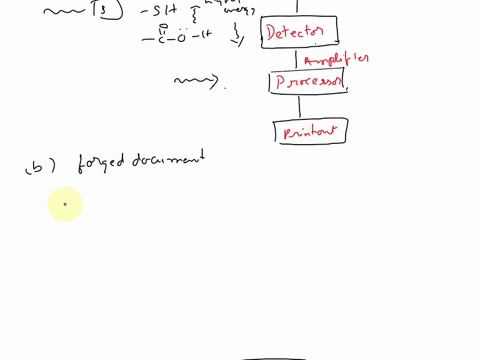 [s] -SH { Higher energy
-C-Ö-H }
O
Detector
Amplifier
Processor
Printout
(b) forged document